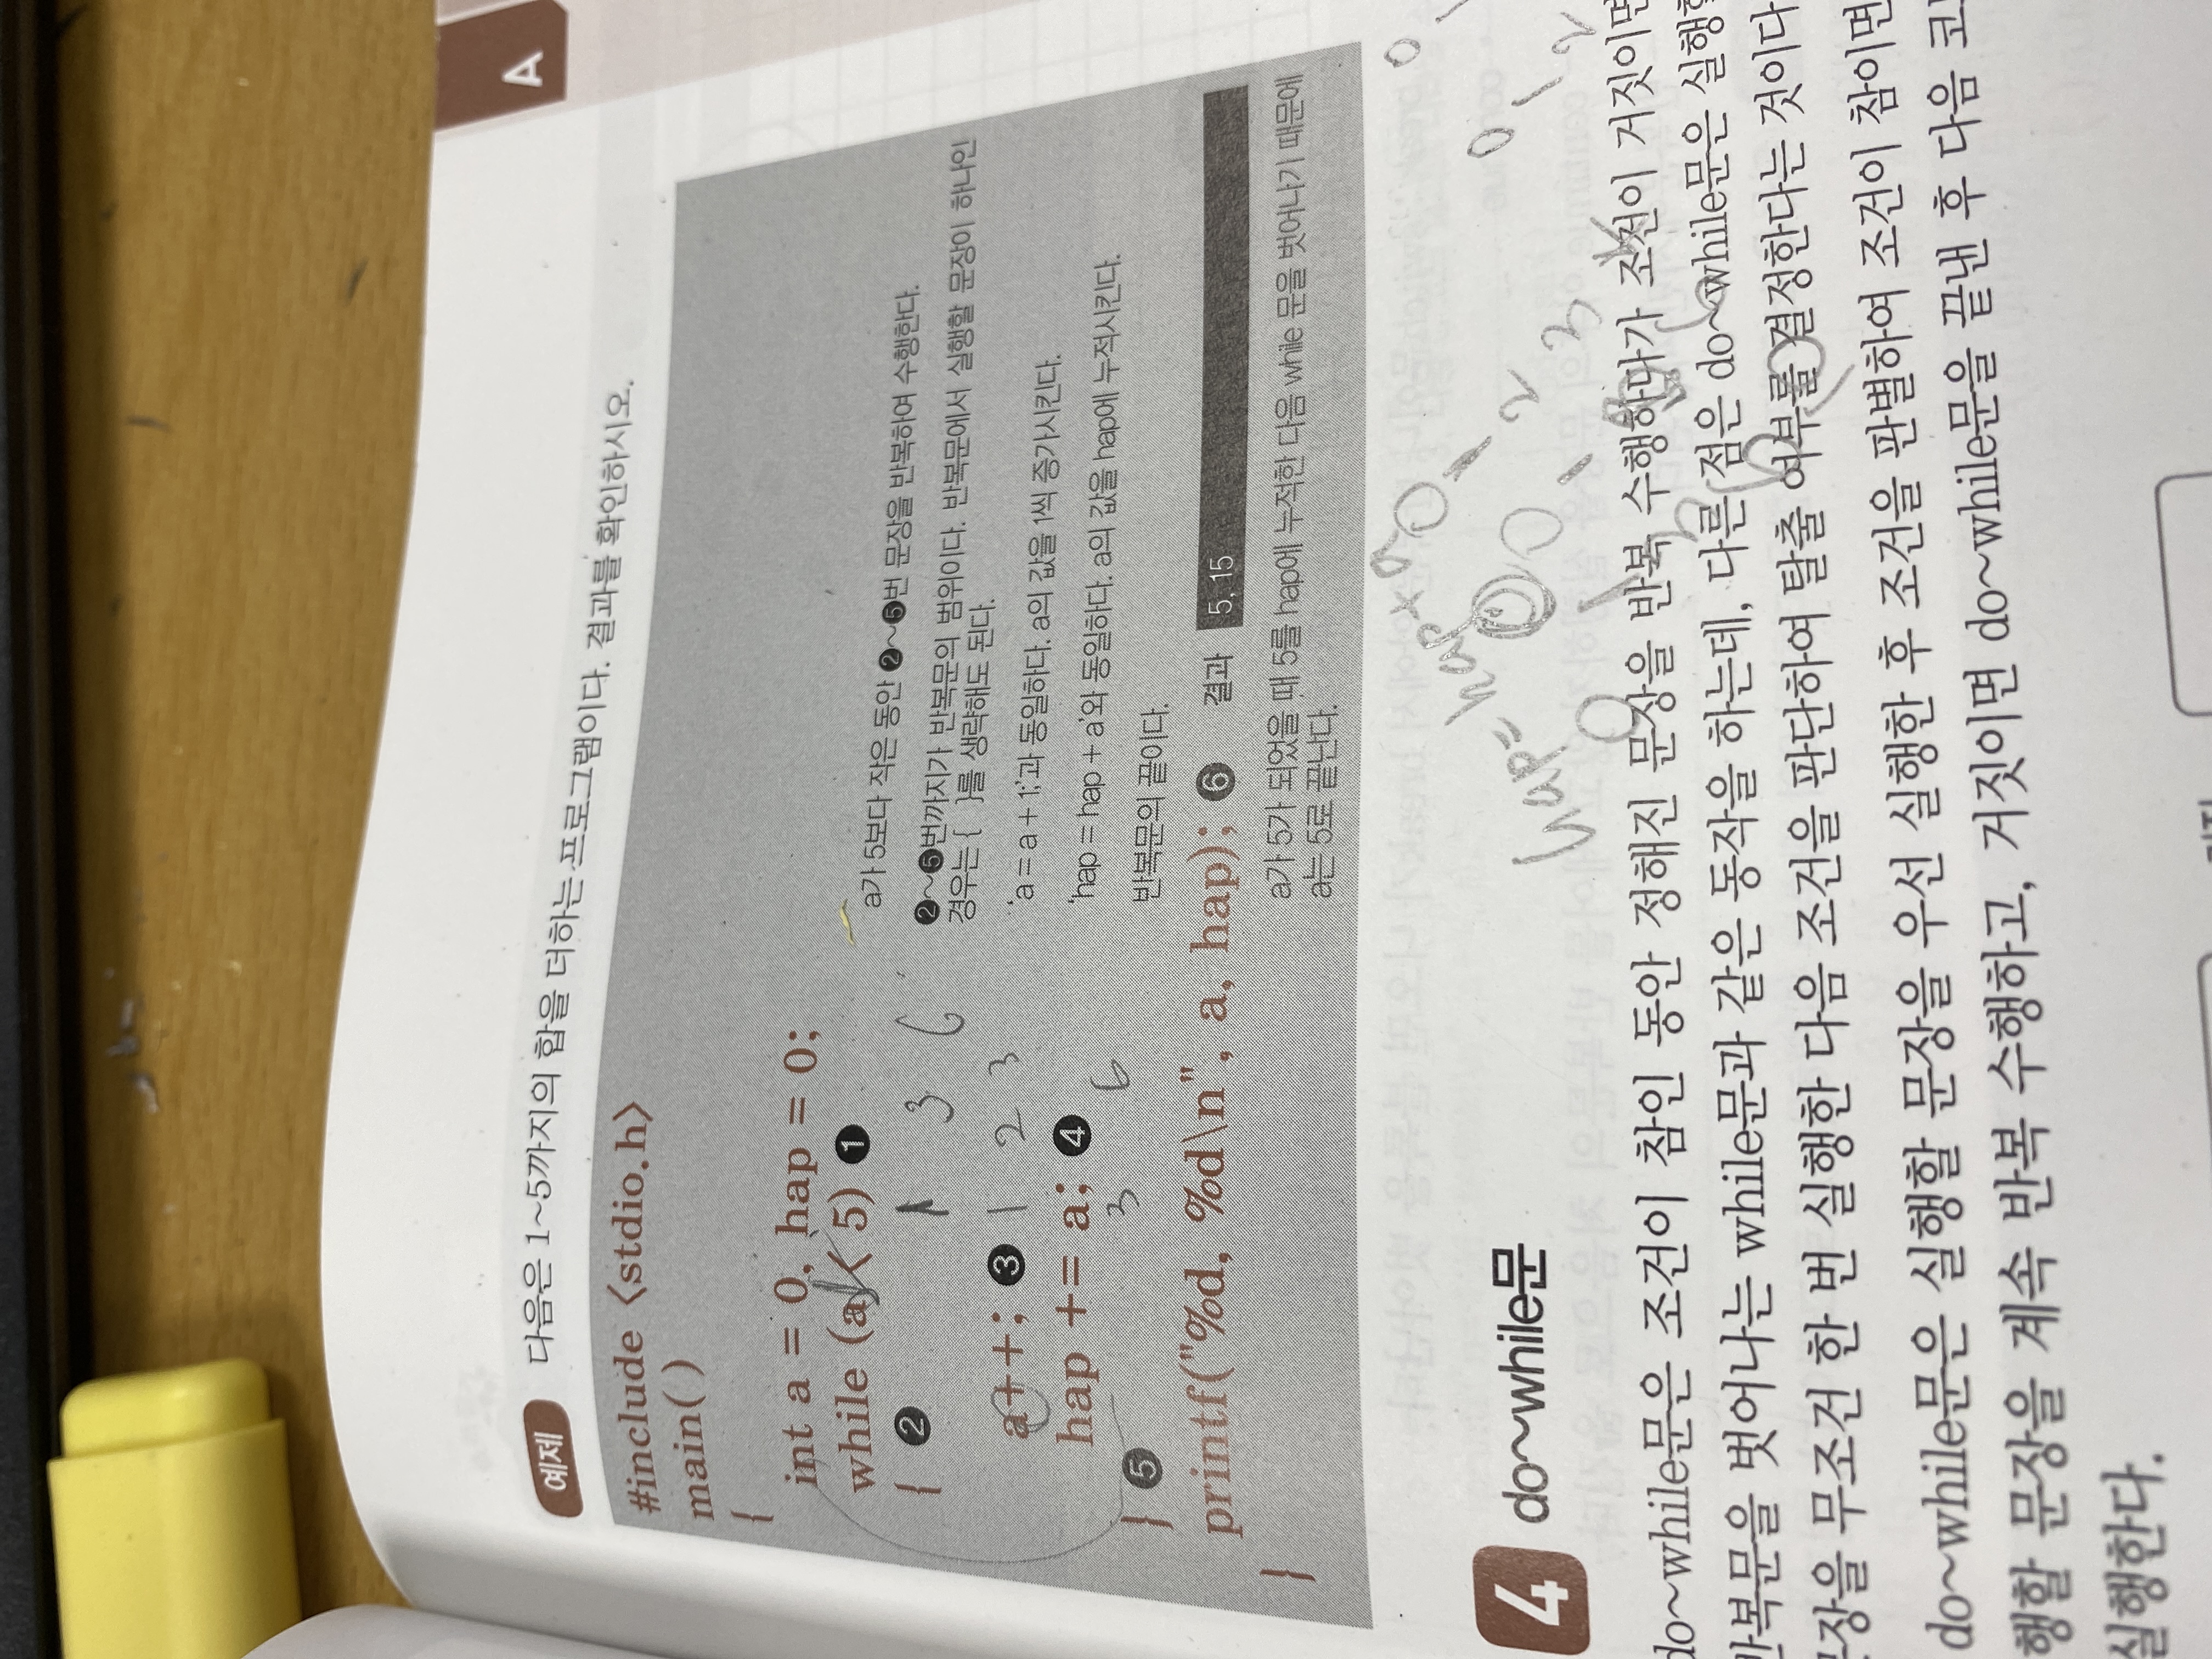 A
예제 다음은 1~5까지의 합을 더하는 프로그램이다. 결과를 확인하시오.
#include <stdio.h>
main( )
{
int a = 0, hap = 0;
while (a < 5) ❶ a가 5보다 작은 동안 ❷~❺번 문장을 반복하여 수행한다.
{ ❷ ❷~❺번까지가 반복문의 범위이다. 반복문에서 실행할 문장이 하나인
경우는 { }를 생략해도 된다.
1 3 6
a++; ❸ 'a = a + 1;'과 동일하다. a의 값을 1씩 증가시킨다.
1 2 3
hap += a; ❹ 'hap = hap + a'와 동일하다. a의 값을 hap에 누적시킨다.
3 6
} ❺ 반복문의 끝이다.
printf("%d, %d\n", a, hap); ❻ 결과 5, 15
} a가 5가 되었을 때 5를 hap에 누적한 다음 while 문을 벗어나기 때문에
a는 5로 끝난다.
4 do~while문
do~while문은 조건이 참인 동안 정해진 문장을 반복 수행하다가 조건이 거짓이면
반복문을 벗어나는 while문과 같은 동작을 하는데, 다른 점은 do~while문은 실행할
문장을 무조건 한 번 실행한 다음 조건을 판단하여 탈출 여부를 결정한다는 것이다
do~while문은 실행할 문장을 우선 실행한 후 조건을 판별하여 조건이 참이면
행할 문장을 계속 반복 수행하고, 거짓이면 do~while문을 끝낸 후 다음 코
실행한다.